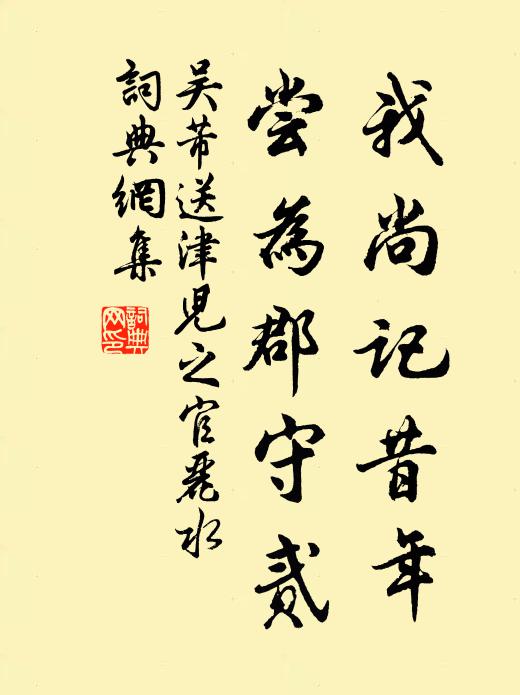 我尚记昔年
尝為郡守貳
吴芾送津児之官麗水
詞典網集
詞典
网印